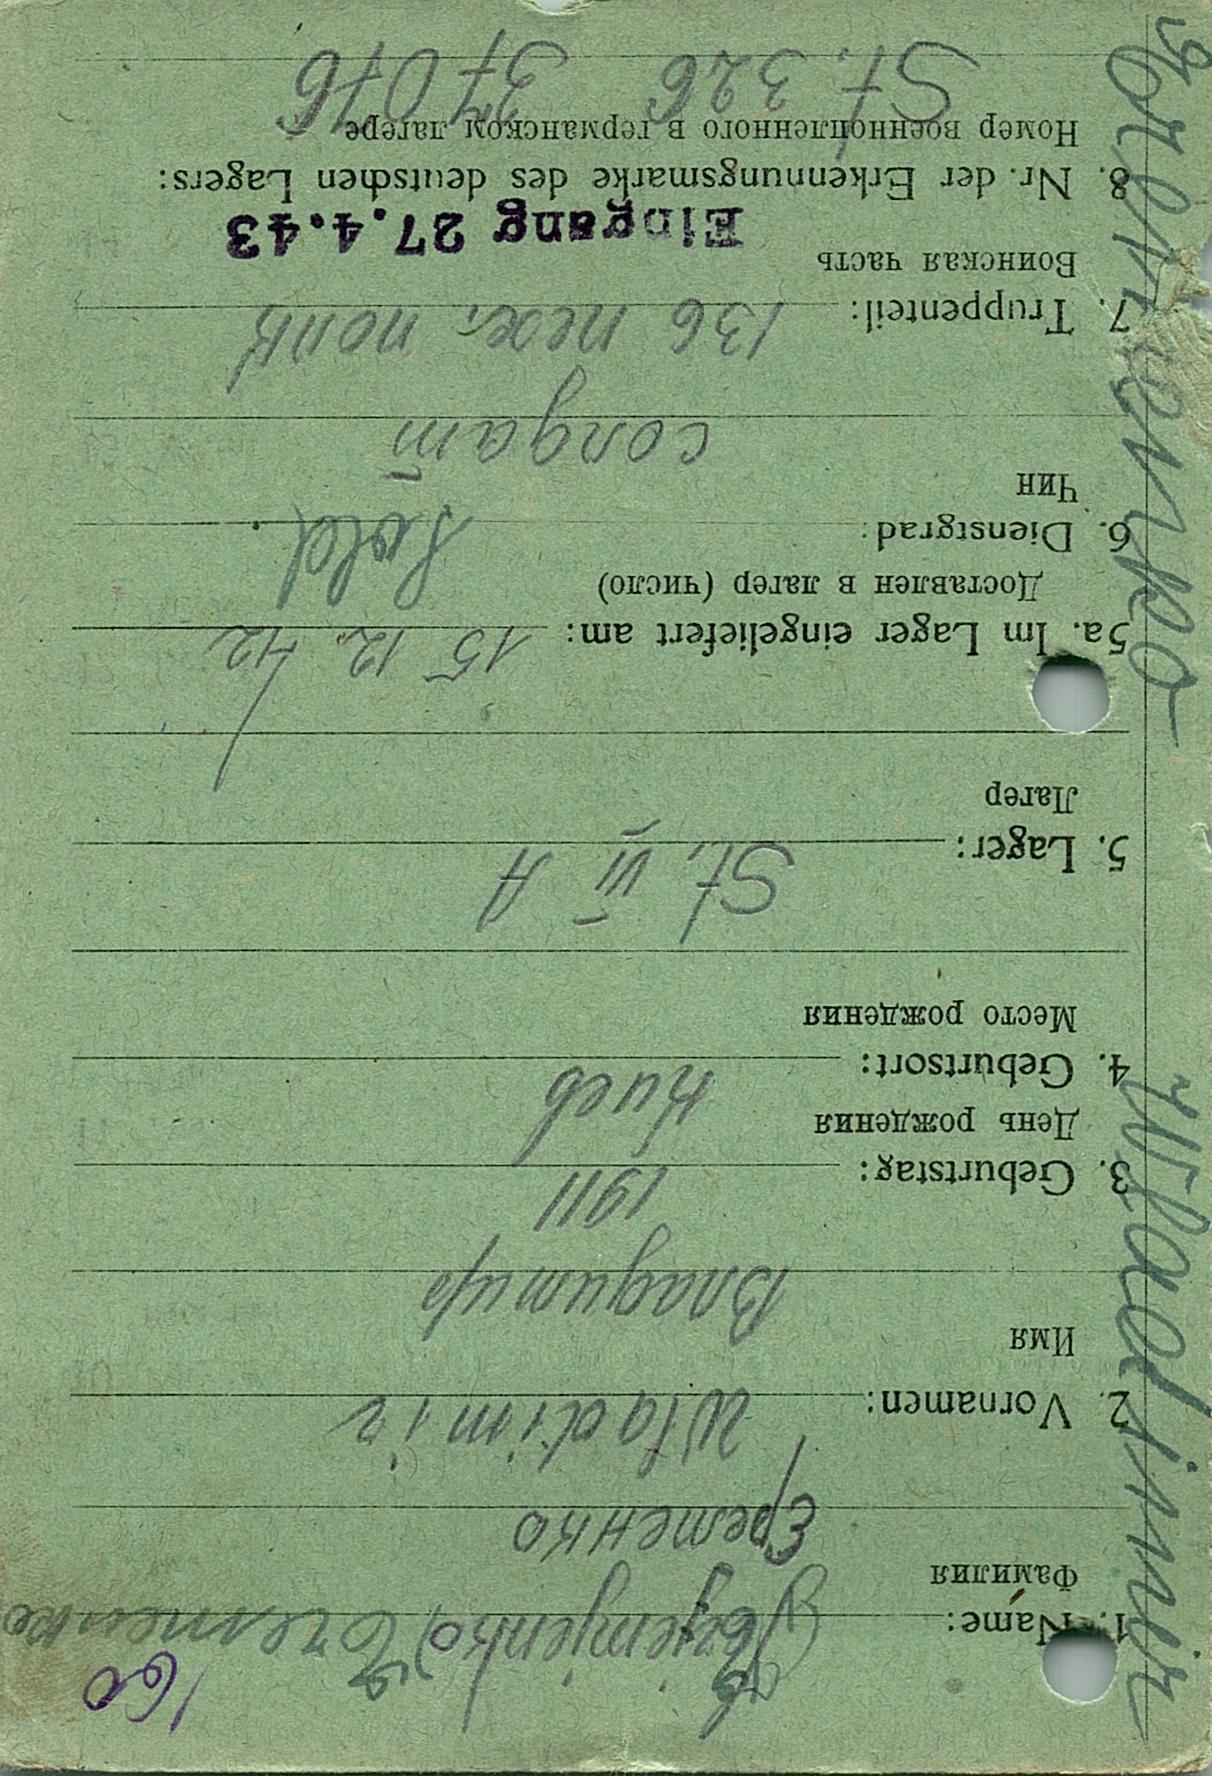 160
1. Name: Jeremenko
Фамилия
Еременко
2. Vornamen: Wladimir
Имя
Владимир
3. Geburtstag: 1911
День рождения
4. Geburtsort: Киев
Место рождения
5. Lager: St. VI A
Лагер
5a. Im Lager eingeliefert am: 15 12. 42
Доставлен в лагер (число)
6. Dienstgrad: Sold.
Чин
солдат
7. Truppenteil: 136 пех. полк
Воинская часть
Eingang 27.4.43
8. Nr. der Erkennungsmarke des deutschen Lagers:
Номер военнопленного в германском лагере
St. 326 37076
Wladimir